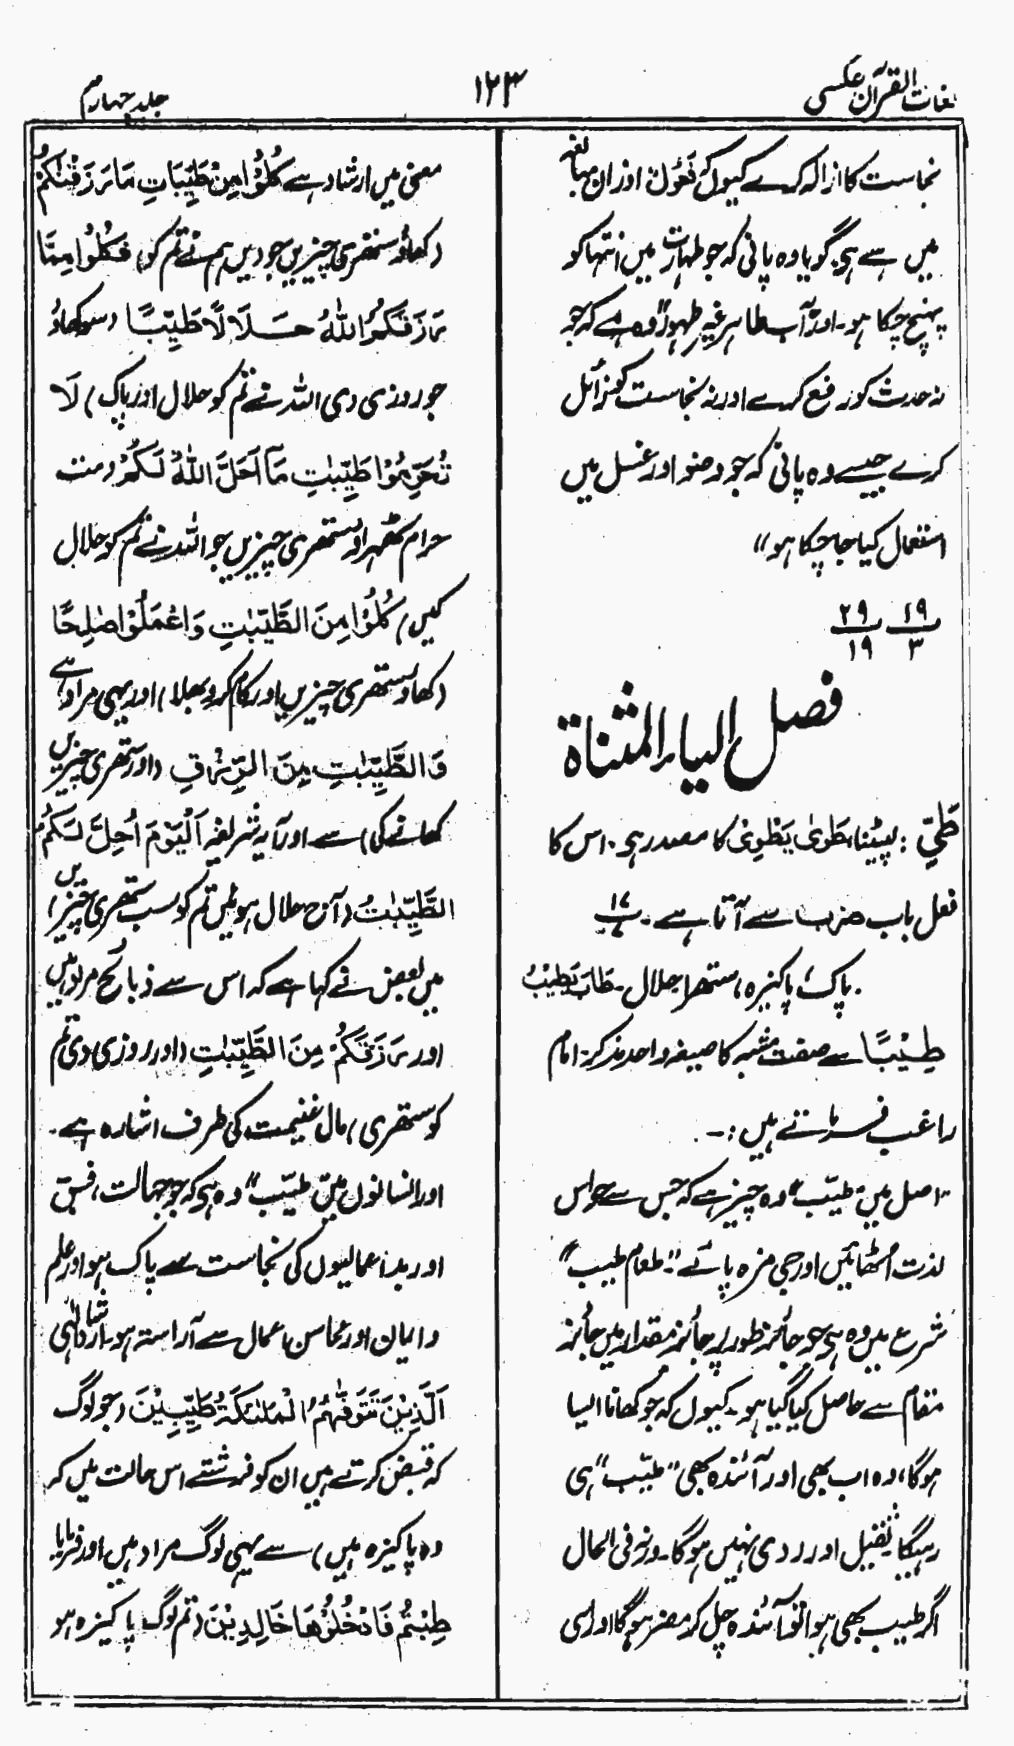 لغات القرآن عکسی
۱۲۳
جلد چہارم
نجاست کا ازالہ کرے کیوں کہ فَعُوْلٌ اوزان مبالغہ
میں سے ہی گویا وہ پانی کہ جو طہارت میں انتہا کو
پہنچ چکا ہو۔ اور آب طاہر غیر طہور" وہ ہے کہ جو
نہ حدث کو رفع کرے اور نہ نجاست کو زائل
کرے جیسے وہ پانی کہ جو وضو اور غسل میں
استعمال کیا جا چکا ہو"
۱۹ ۲۹
۳ ۱۹
فصل الیاء المثناۃ
طَیّ : لپیٹنا، طَوٰی یَطْوِیْ کا مصدر ہی۔ اس کا
فعل باب ضرب سے آتا ہے۔ ۱۷
پاک، پاکیزہ، ستھرا، حلال۔ طَابَ یَطِیْبُ
طِیْبًا سے صفت مشبہ کا صیغہ واحد مذکر: امام
راغب فرماتے ہیں :۔
"اصل میں "طیّب" وہ چیز ہے کہ جس سے حواس
لذت اٹھائیں اور جی مزہ پائے "۔ طعام طیب"
شرع میں وہ ہی جو جائز طور پر جائز مقدار میں جائز
مقام سے حاصل کیا گیا ہو۔ کیوں کہ جو کھانا ایسا
ہوگا، وہ اب بھی اور آئندہ بھی "طیّب" ہی
رہیگا ثقیل اور ردی نہیں ہوگا۔ ورنہ فی الحال
اگر طیب بھی ہوا تو آئندہ چل کر مضر ہوگا اور اسی
معنی میں ارشاد ہے کُلُوْا مِنْ طَیِّبَاتِ مَا رَزَقْنٰکُمْ
(کھاؤ ستھری چیزیں جو دیں ہم نے تم کو) فَکُلُوْا مِمَّا
رَزَقَکُمُ اللّٰہُ حَلَالًا طَیِّبًا (سو کھاؤ
جو روزی دی اللہ نے تم کو حلال اور پاک) لَا
تُحَرِّمُوْا طَیِّبٰتِ مَآ اَحَلَّ اللّٰہُ لَکُمْ (مت
حرام ٹھہراؤ ستھری چیزیں جو اللہ نے تم کو حلال
کیں) کُلُوْا مِنَ الطَّیِّبٰتِ وَاعْمَلُوْا صٰلِحًا
(کھاؤ ستھری چیزیں اور کام کرو بھلا) اور یہی مراد ہے
وَالطَّیِّبٰتِ مِنَ الرِّزْقِ (اور ستھری چیزیں
کھانے کی) سے اور آیہ شریفہ اَلْیَوْمَ اُحِلَّ لَکُمُ
الطَّیِّبٰتُ (آج حلال ہوئیں تم کو سب ستھری چیزیں)
میں بعض نے کہا ہے کہ اس سے ذبائح مراد ہیں
اور رَزَقَکُمْ مِنَ الطَّیِّبٰتِ (اور روزی دی تم
کو ستھری) مال غنیمت کی طرف اشارہ ہے۔
اور انسانوں میں "طیّب" وہ ہی کہ جو جہالت، فسق
اور بد اعمالیوں کی نجاست سے پاک ہو اور علم
و ایمان اور محاسن اعمال سے آراستہ ہو۔ ارشاد الٰہی
اَلَّذِیْنَ تَتَوَفّٰھُمُ الْمَلٰئِکَۃُ طَیِّبِیْنَ (جو لوگ
کہ قبض کرتے ہیں ان کو فرشتے اس حالت میں کہ
وہ پاکیزہ ہیں) سے یہی لوگ مراد ہیں اور فرمایا
طِبْتُمْ فَادْخُلُوْھَا خَالِدِیْنَ (تم لوگ پاکیزہ ہو